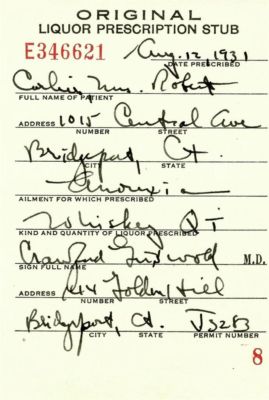 ORIGINAL
LIQUOR PRESCRIPTION STUB
E346621
Aug. 12, 1931
DATE PRESCRIBED
Mrs. Robert
FULL NAME OF PATIENT
ADDRESS 1015 Central Ave
NUMBER STREET
Bridgeport, Ct.
CITY STATE
Anorexia
AILMENT FOR WHICH PRESCRIBED
Whiskey
KIND AND QUANTITY OF LIQUOR PRESCRIBED
Crawford Griswold M.D.
SIGN FULL NAME
ADDRESS Golden Hill
NUMBER STREET
Bridgeport, Ct.
CITY STATE PERMIT NUMBER
8